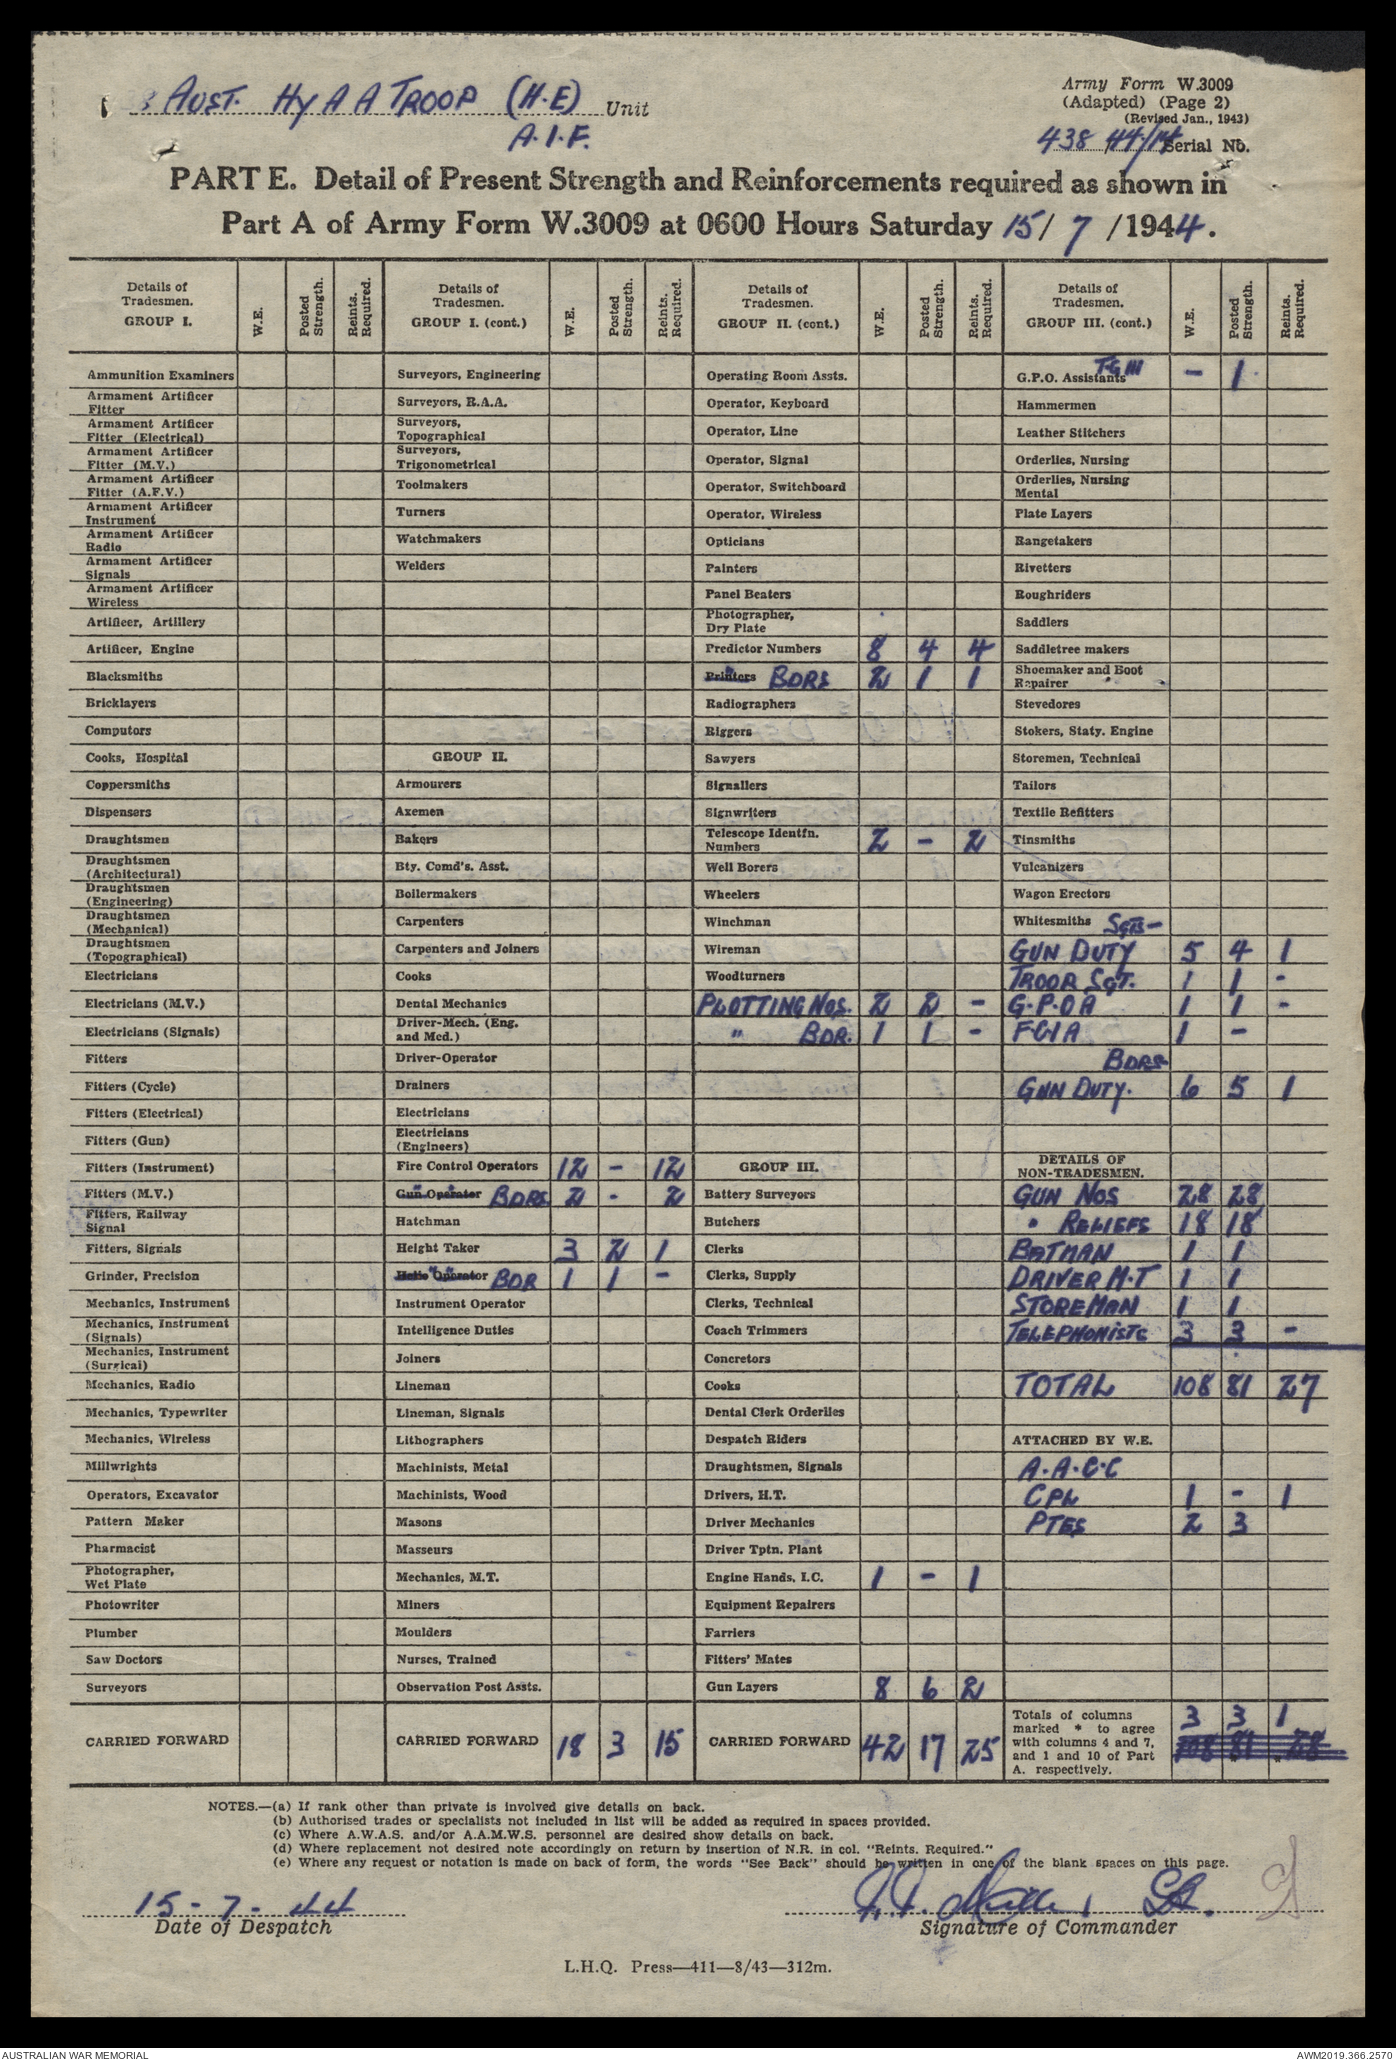 AUST. HY A A TROOP (H.E) Unit
A.I.F.
Army Form W.3009
(Adapted) (Page 2)
(Revised Jan., 1943)
438 /44/14 Serial No.
PART E. Detail of Present Strength and Reinforcements required as shown in
Part A of Army Form W.3009 at 0600 Hours Saturday 15/ 7 /1944.
Details of Tradesmen. GROUP I. W.E. Posted Strength. Reints. Required.
Ammunition Examiners
Armament Artificer Fitter
Armament Artificer Fitter (Electrical)
Armament Artificer Fitter (M.V.)
Armament Artificer Fitter (A.F.V.)
Armament Artificer Instrument
Armament Artificer Radio
Armament Artificer Signals
Armament Artificer Wireless
Artificer, Artillery
Artificer, Engine
Blacksmiths
Bricklayers
Computors
Cooks, Hospital
Coppersmiths
Dispensers
Draughtsmen
Draughtsmen (Architectural)
Draughtsmen (Engineering)
Draughtsmen (Mechanical)
Draughtsmen (Topographical)
Electricians
Electricians (M.V.)
Electricians (Signals)
Fitters
Fitters (Cycle)
Fitters (Electrical)
Fitters (Gun)
Fitters (Instrument)
Fitters (M.V.)
Fitters, Railway Signal
Fitters, Signals
Grinder, Precision
Mechanics, Instrument
Mechanics, Instrument (Signals)
Mechanics, Instrument (Surgical)
Mechanics, Radio
Mechanics, Typewriter
Mechanics, Wireless
Millwrights
Operators, Excavator
Pattern Maker
Pharmacist
Photographer, Wet Plate
Photowriter
Plumber
Saw Doctors
Surveyors
CARRIED FORWARD
Details of Tradesmen. GROUP I. (cont.) W.E. Posted Strength. Reints. Required.
Surveyors, Engineering
Surveyors, R.A.A.
Surveyors, Topographical
Surveyors, Trigonometrical
Toolmakers
Turners
Watchmakers
Welders
GROUP II.
Armourers
Axemen
Bakers
Bty. Comd's. Asst.
Boilermakers
Carpenters
Carpenters and Joiners
Cooks
Dental Mechanics
Driver-Mech. (Eng. and Med.)
Driver-Operator
Drainers
Electricians
Electricians (Engineers)
Fire Control Operators 12 - 12
Gun Operator BDRS 2 - 2
Hatchman
Height Taker 3 2 1
Helio Operator BDR 1 1 -
Instrument Operator
Intelligence Duties
Joiners
Lineman
Lineman, Signals
Lithographers
Machinists, Metal
Machinists, Wood
Masons
Masseurs
Mechanics, M.T.
Miners
Moulders
Nurses, Trained
Observation Post Assts.
CARRIED FORWARD 18 3 15
Details of Tradesmen. GROUP II. (cont.) W.E. Posted Strength. Reints. Required.
Operating Room Assts.
Operator, Keyboard
Operator, Line
Operator, Signal
Operator, Switchboard
Operator, Wireless
Opticians
Painters
Panel Beaters
Photographer, Dry Plate
Predictor Numbers 8 4 4
Printers BDRS 2 1 1
Radiographers
Riggers
Sawyers
Signallers
Signwriters
Telescope Identfn. Numbers 2 - 2
Well Borers
Wheelers
Winchman
Wireman
Woodturners
PLOTTING NOS. 2 2 -
" BDR. 1 1 -
GROUP III.
Battery Surveyors
Butchers
Clerks
Clerks, Supply
Clerks, Technical
Coach Trimmers
Concretors
Cooks
Dental Clerk Orderlies
Despatch Riders
Draughtsmen, Signals
Drivers, H.T.
Driver Mechanics
Driver Tptn. Plant
Engine Hands, I.C. 1 - 1
Equipment Repairers
Farriers
Fitters' Mates
Gun Layers 8 6 2
CARRIED FORWARD 42 17 25
Details of Tradesmen. GROUP III. (cont.) W.E. Posted Strength. Reints. Required.
G.P.O. Assistants TG III - 1
Hammermen
Leather Stitchers
Orderlies, Nursing
Orderlies, Nursing Mental
Plate Layers
Rangetakers
Rivetters
Roughriders
Saddlers
Saddletree makers
Shoemaker and Boot Repairer
Stevedores
Stokers, Staty. Engine
Storemen, Technical
Tailors
Textile Refitters
Tinsmiths
Vulcanizers
Wagon Erectors
Whitesmiths SGTS-
GUN DUTY 5 4 1
TROOP SGT. 1 1 -
G.P.O A 1 1 -
FCIA 1 -
BDRS
GUN DUTY. 6 5 1
DETAILS OF NON-TRADESMEN.
GUN NOS 28 28
" RELIEFS 18 18
BATMAN 1 1
DRIVER M.T 1 1
STOREMAN 1 1
TELEPHONISTS 3 3 -
TOTAL 108 81 27
ATTACHED BY W.E.
A.A.C.C
CPL 1 - 1
PTES 2 3
Totals of columns marked * to agree with columns 4 and 7, and 1 and 10 of Part A. respectively. 3 3 1
108 81 28
NOTES.—(a) If rank other than private is involved give details on back.
(b) Authorised trades or specialists not included in list will be added as required in spaces provided.
(c) Where A.W.A.S. and/or A.A.M.W.S. personnel are desired show details on back.
(d) Where replacement not desired note accordingly on return by insertion of N.R. in col. "Reints. Required."
(e) Where any request or notation is made on back of form, the words "See Back" should be written in one of the blank spaces on this page.
15-7-44
Date of Despatch
Signature of Commander
L.H.Q. Press—411—8/43—312m.
AUSTRALIAN WAR MEMORIAL
AWM2019.366.2570